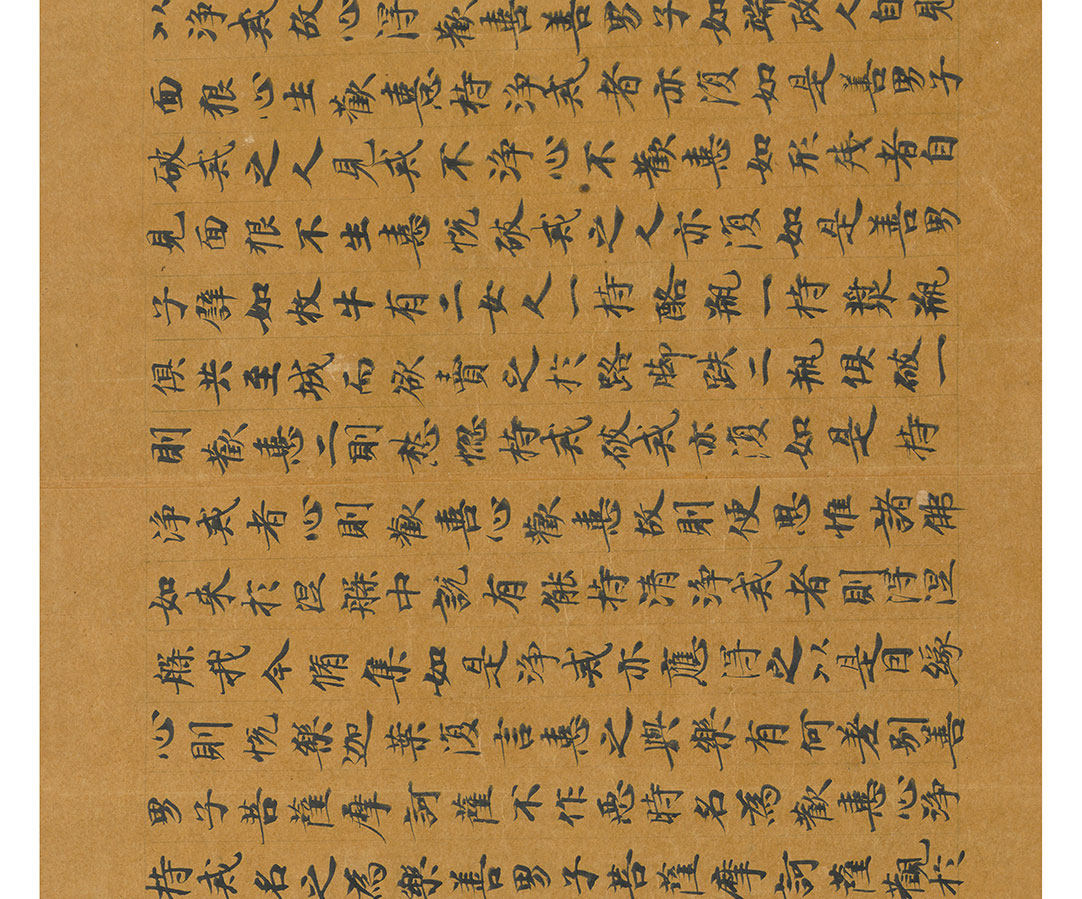 以淨戒故心得歡喜善男子如端政人自見
面貌心生歡憙持淨戒者亦復如是善男子
破戒之人見戒不淨心不歡憙如形殘者自
見面貌不生憙悅破戒之人亦復如是善男
子譬如牧牛有二女人一持酪瓶一持漿瓶
俱共至城而欲賣之於路脚跌二瓶俱破一
則歡憙二則愁惱持戒破戒亦復如是持
淨戒者心則歡喜心歡憙故則便思惟諸佛
如來於涅槃中說有能持清淨戒者則得涅
槃我今脩集如是淨戒亦應得之以是因緣
心則悅樂迦葉復言憙之與樂有何差別善
男子菩薩摩訶薩不作惡時名為歡憙心淨
持戒名之為樂善男子菩薩摩訶薩觀於